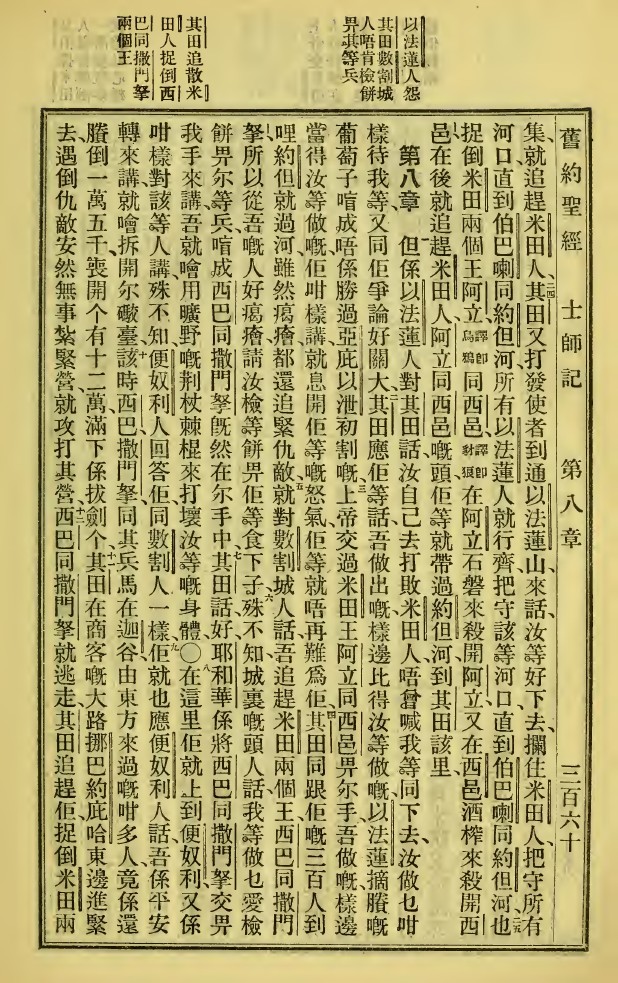 以法蓮人怨
其田數割城
人唔肯檢餅
畀其等兵
其田追散米
田人捉倒西
巴同撒門拏
兩個王
舊約聖經 士師記 第八章 三百六十
集、就追趕米田人、其田又打發使者到通以法蓮山、來話、汝等好下去、攔住米田人、把守所有
河口、直到伯巴喇同約但河、所有以法蓮人就行齊把守該等河口、直到伯巴喇同約但河、也
捉倒米田兩個王阿立譯即烏鴉同西邑譯即豺狼在阿立石磐來殺開阿立、又在西邑酒榨來殺開西
邑、在後就追趕米田人、阿立同西邑嘅頭、佢等就帶過約但河到其田該里、
第八章 但係以法蓮人對其田話、汝自己去打敗米田人、唔曾喊我等同下去、汝做乜咁
樣待我等、又同佢爭論好關大、其田應佢等話、吾做出嘅樣邊比得汝等做嘅、以法蓮摘賸嘅
葡萄子、啀成唔係勝過亞庇以泄初割嘅、上帝交過米田王阿立同西邑畀尔手、吾做嘅樣邊
當得汝等做嘅、佢咁樣講、就息開佢等嘅怒氣、佢等就唔再難爲佢、其田同跟佢嘅三百人到
哩約但、就過河、雖然㾪瘡都還追緊仇敵、就對數割城人話、吾追趕米田兩個王西巴同撒門
拏、所以從吾嘅人好㾪瘡、請汝檢等餅畀佢等食下子、殊不知城裏嘅頭人話、我等做乜愛檢
餅畀尔等兵、啀成西巴同撒門拏旣然在尔手中、其田話、好、耶和華係將西巴同撒門拏交畀
我手來講、吾就噲用曠野嘅荆杖棘棍來打壞汝等嘅身體、〇在這里佢就上到便奴利、又係
咁樣對該等人講、殊不知便奴利人回答佢、同數割人一樣、佢就也應便奴利人話、吾係平安
轉來講、就噲拆開尔礮臺、該時西巴撒門拏同其兵馬在迦谷、由東方來過嘅咁多人、竟係還
賸倒一萬五千、喪開个有十二萬、滿下係拔劍个、其田在商客嘅大路、挪巴約庇哈東邊進緊
去、遇倒仇敵安然無事紮緊營、就攻打其營、西巴同撒門拏就逃走、其田追趕佢、捉倒米田兩